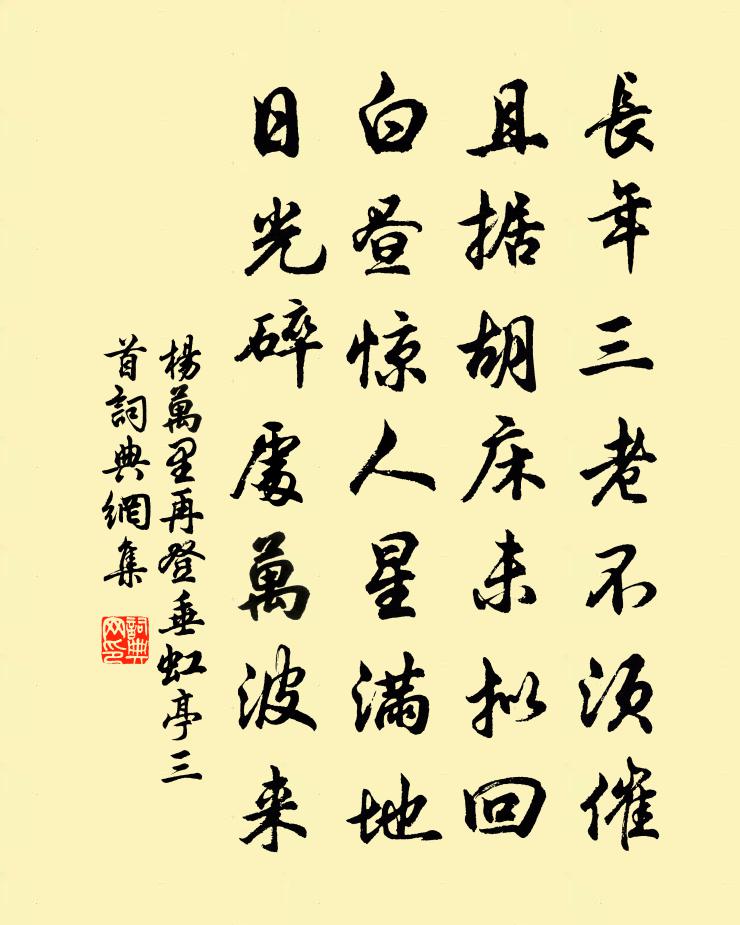 長年三老不須催
且据胡床未拟回
白昼惊人星满地
日光碎處萬波来
楊萬里再登垂虹亭三
首詞典網集
詞典网印